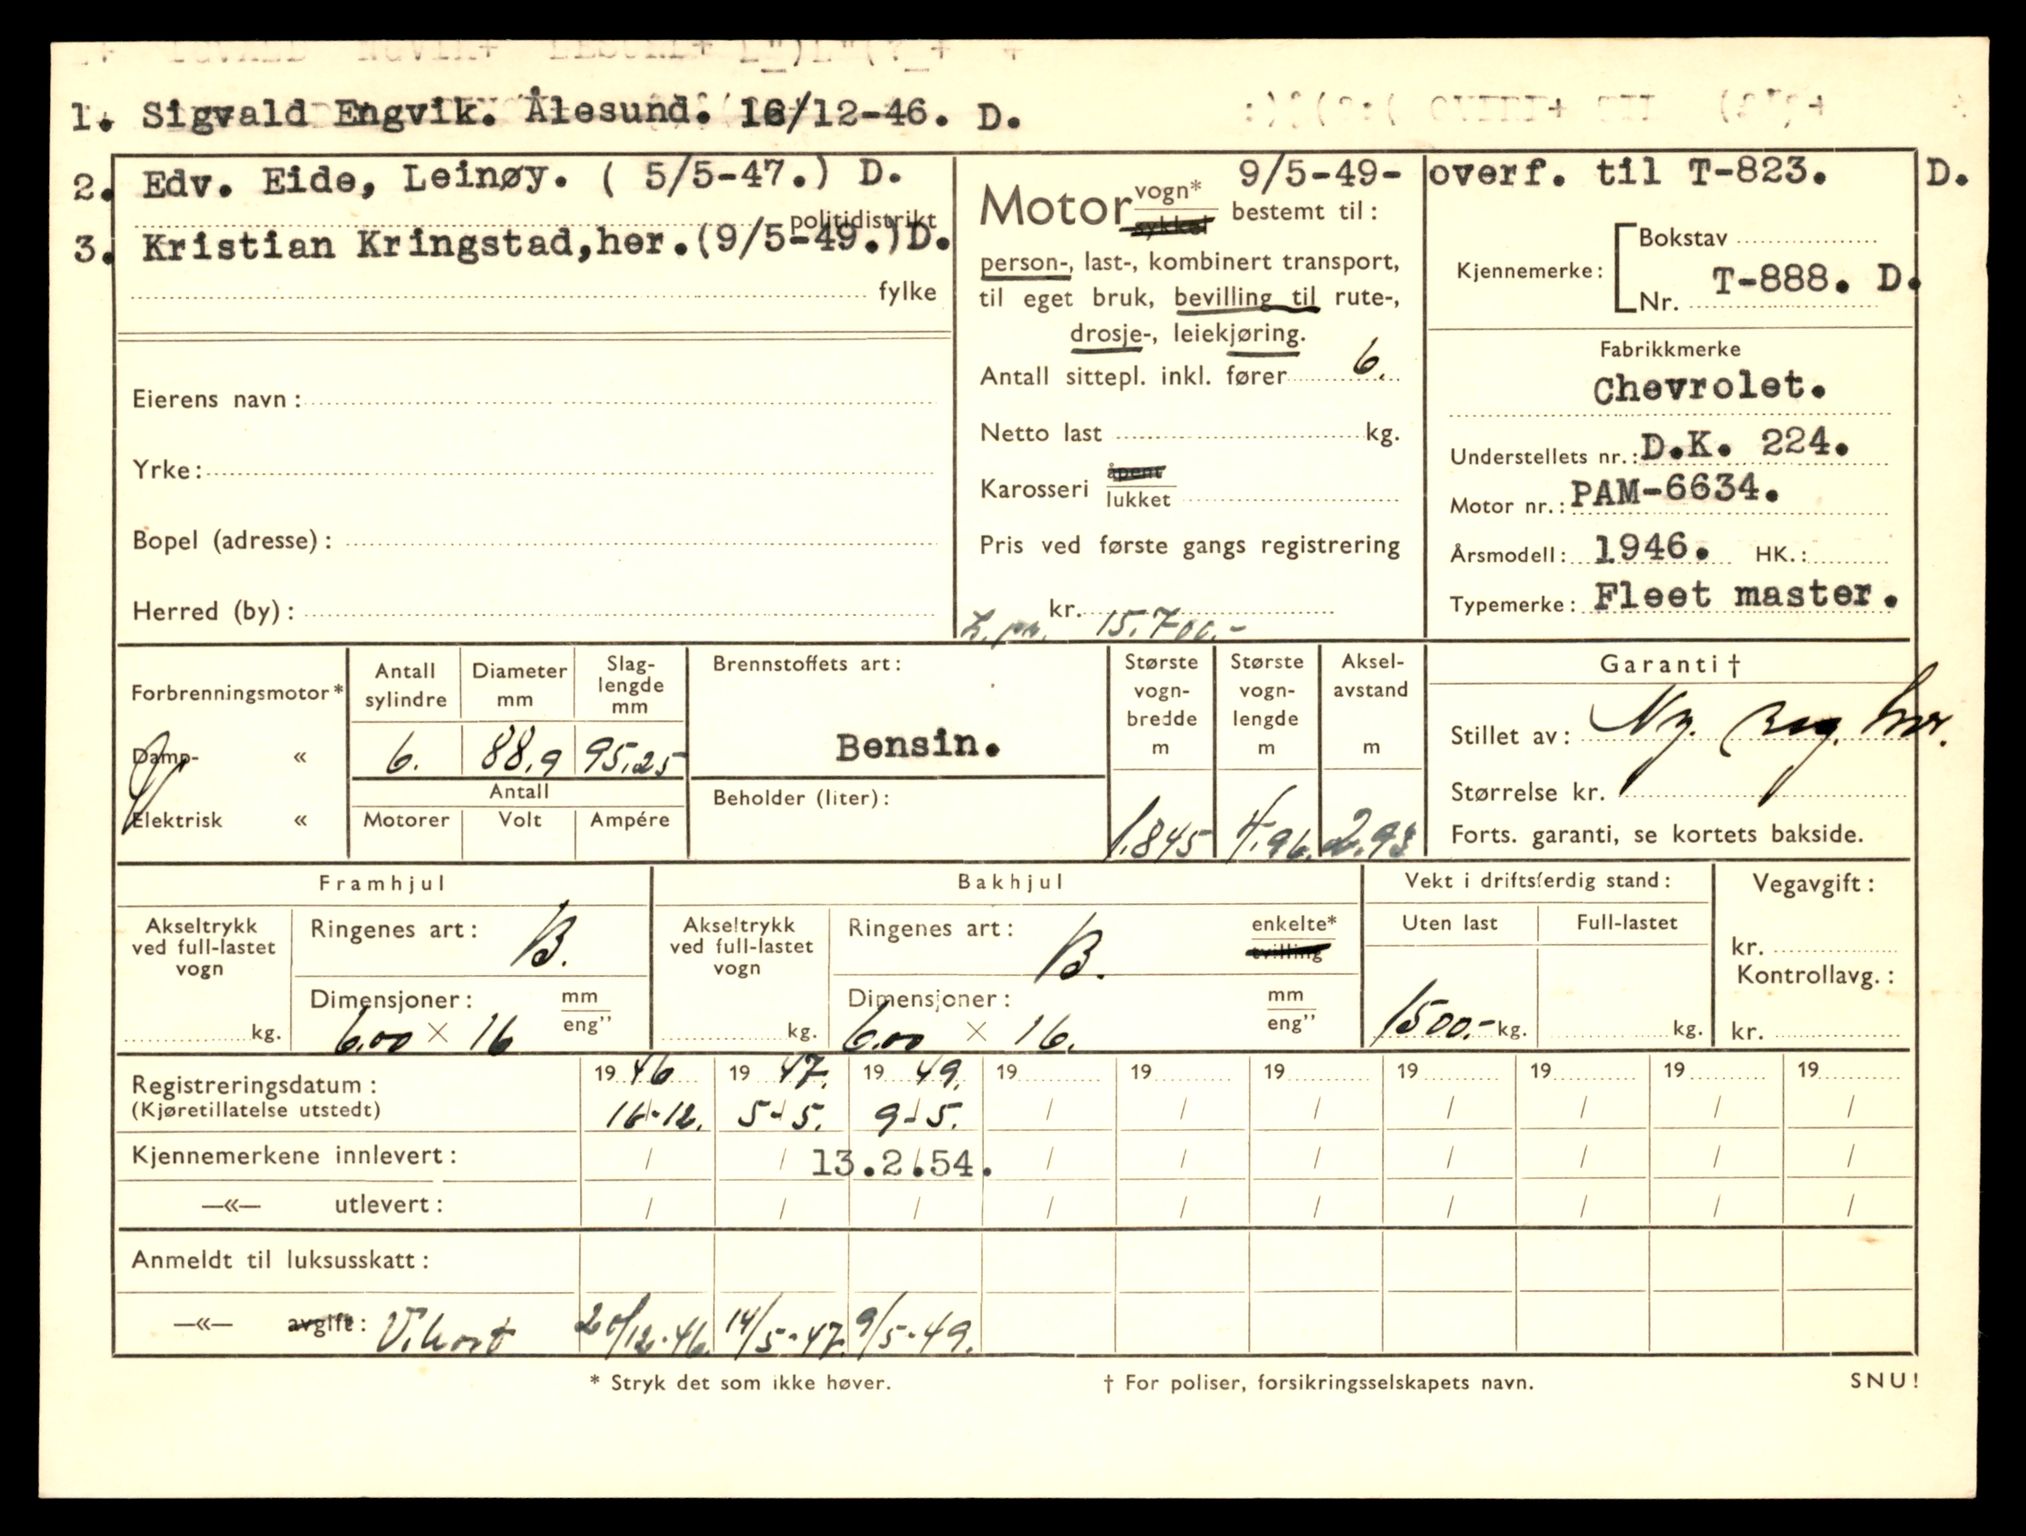 1. Sigvald Engvik. Ålesund. 16/12-46. D.
2. Edv. Eide, Leinøy. ( 5/5-47.) D.
politidistrikt
3. Kristian Kringstad,her.(9/5-49.)D.
fylke
Eierens navn :
Yrke :
Bopel (adresse) :
Herred (by) :
9/5-49- overf. til T-823. D.
Motor vogn* sykkel bestemt til :
person-, last-, kombinert transport,
til eget bruk, bevilling til rute-,
drosje-, leiekjøring.
Antall sittepl. inkl. fører 6.
Netto last kg.
Karosseri åpent lukket
Pris ved første gangs registrering
kr. 15.700.-
Kjennemerke : Bokstav
Nr. T-888. D.
Fabrikkmerke
Chevrolet.
Understellets nr. : D.K. 224.
Motor nr. : PAM-6634.
Årsmodell : 1946. HK. :
Typemerke : Fleet master.
Forbrenningsmotor*
Damp- «
Elektrisk «
Antall sylindre
Diameter mm
Slag-lengde mm
6. 88,9 95,25
Antall
Motorer Volt Ampére
Brennstoffets art :
Bensin.
Beholder (liter) :
Største vogn-bredde m
1.845
Største vogn-lengde m
4.96.
Aksel-avstand m
2.93
Garanti †
Stillet av : Ny. reg. her.
Størrelse kr.
Forts. garanti, se kortets bakside.
Framhjul
Akseltrykk ved full-lastet vogn
kg.
Ringenes art : B.
Dimensjoner : mm eng”
6.00 × 16
Bakhjul
Akseltrykk ved full-lastet vogn
kg.
Ringenes art : B. enkelte* tvilling
Dimensjoner : mm eng”
6.00 × 16.
Vekt i driftsferdig stand :
Uten last Full-lastet
1500.- kg. kg.
Vegavgift :
kr.
Kontrollavg. :
kr.
Registreringsdatum : 19 46 19 47. 19 49. 19 19 19 19 19 19 19
(Kjøretillatelse utstedt) 16-12. 5-5. 9-5. / / / / / / /
Kjennemerkene innlevert : / / 13.2.54. / / / / / / /
—«— utlevert : / / / / / / / / / /
Anmeldt til luksusskatt :
—«— avgift : V.kort 20/12-46. 14/5-47. 9/5-49.
* Stryk det som ikke høver.
† For poliser, forsikringsselskapets navn.
SNU!